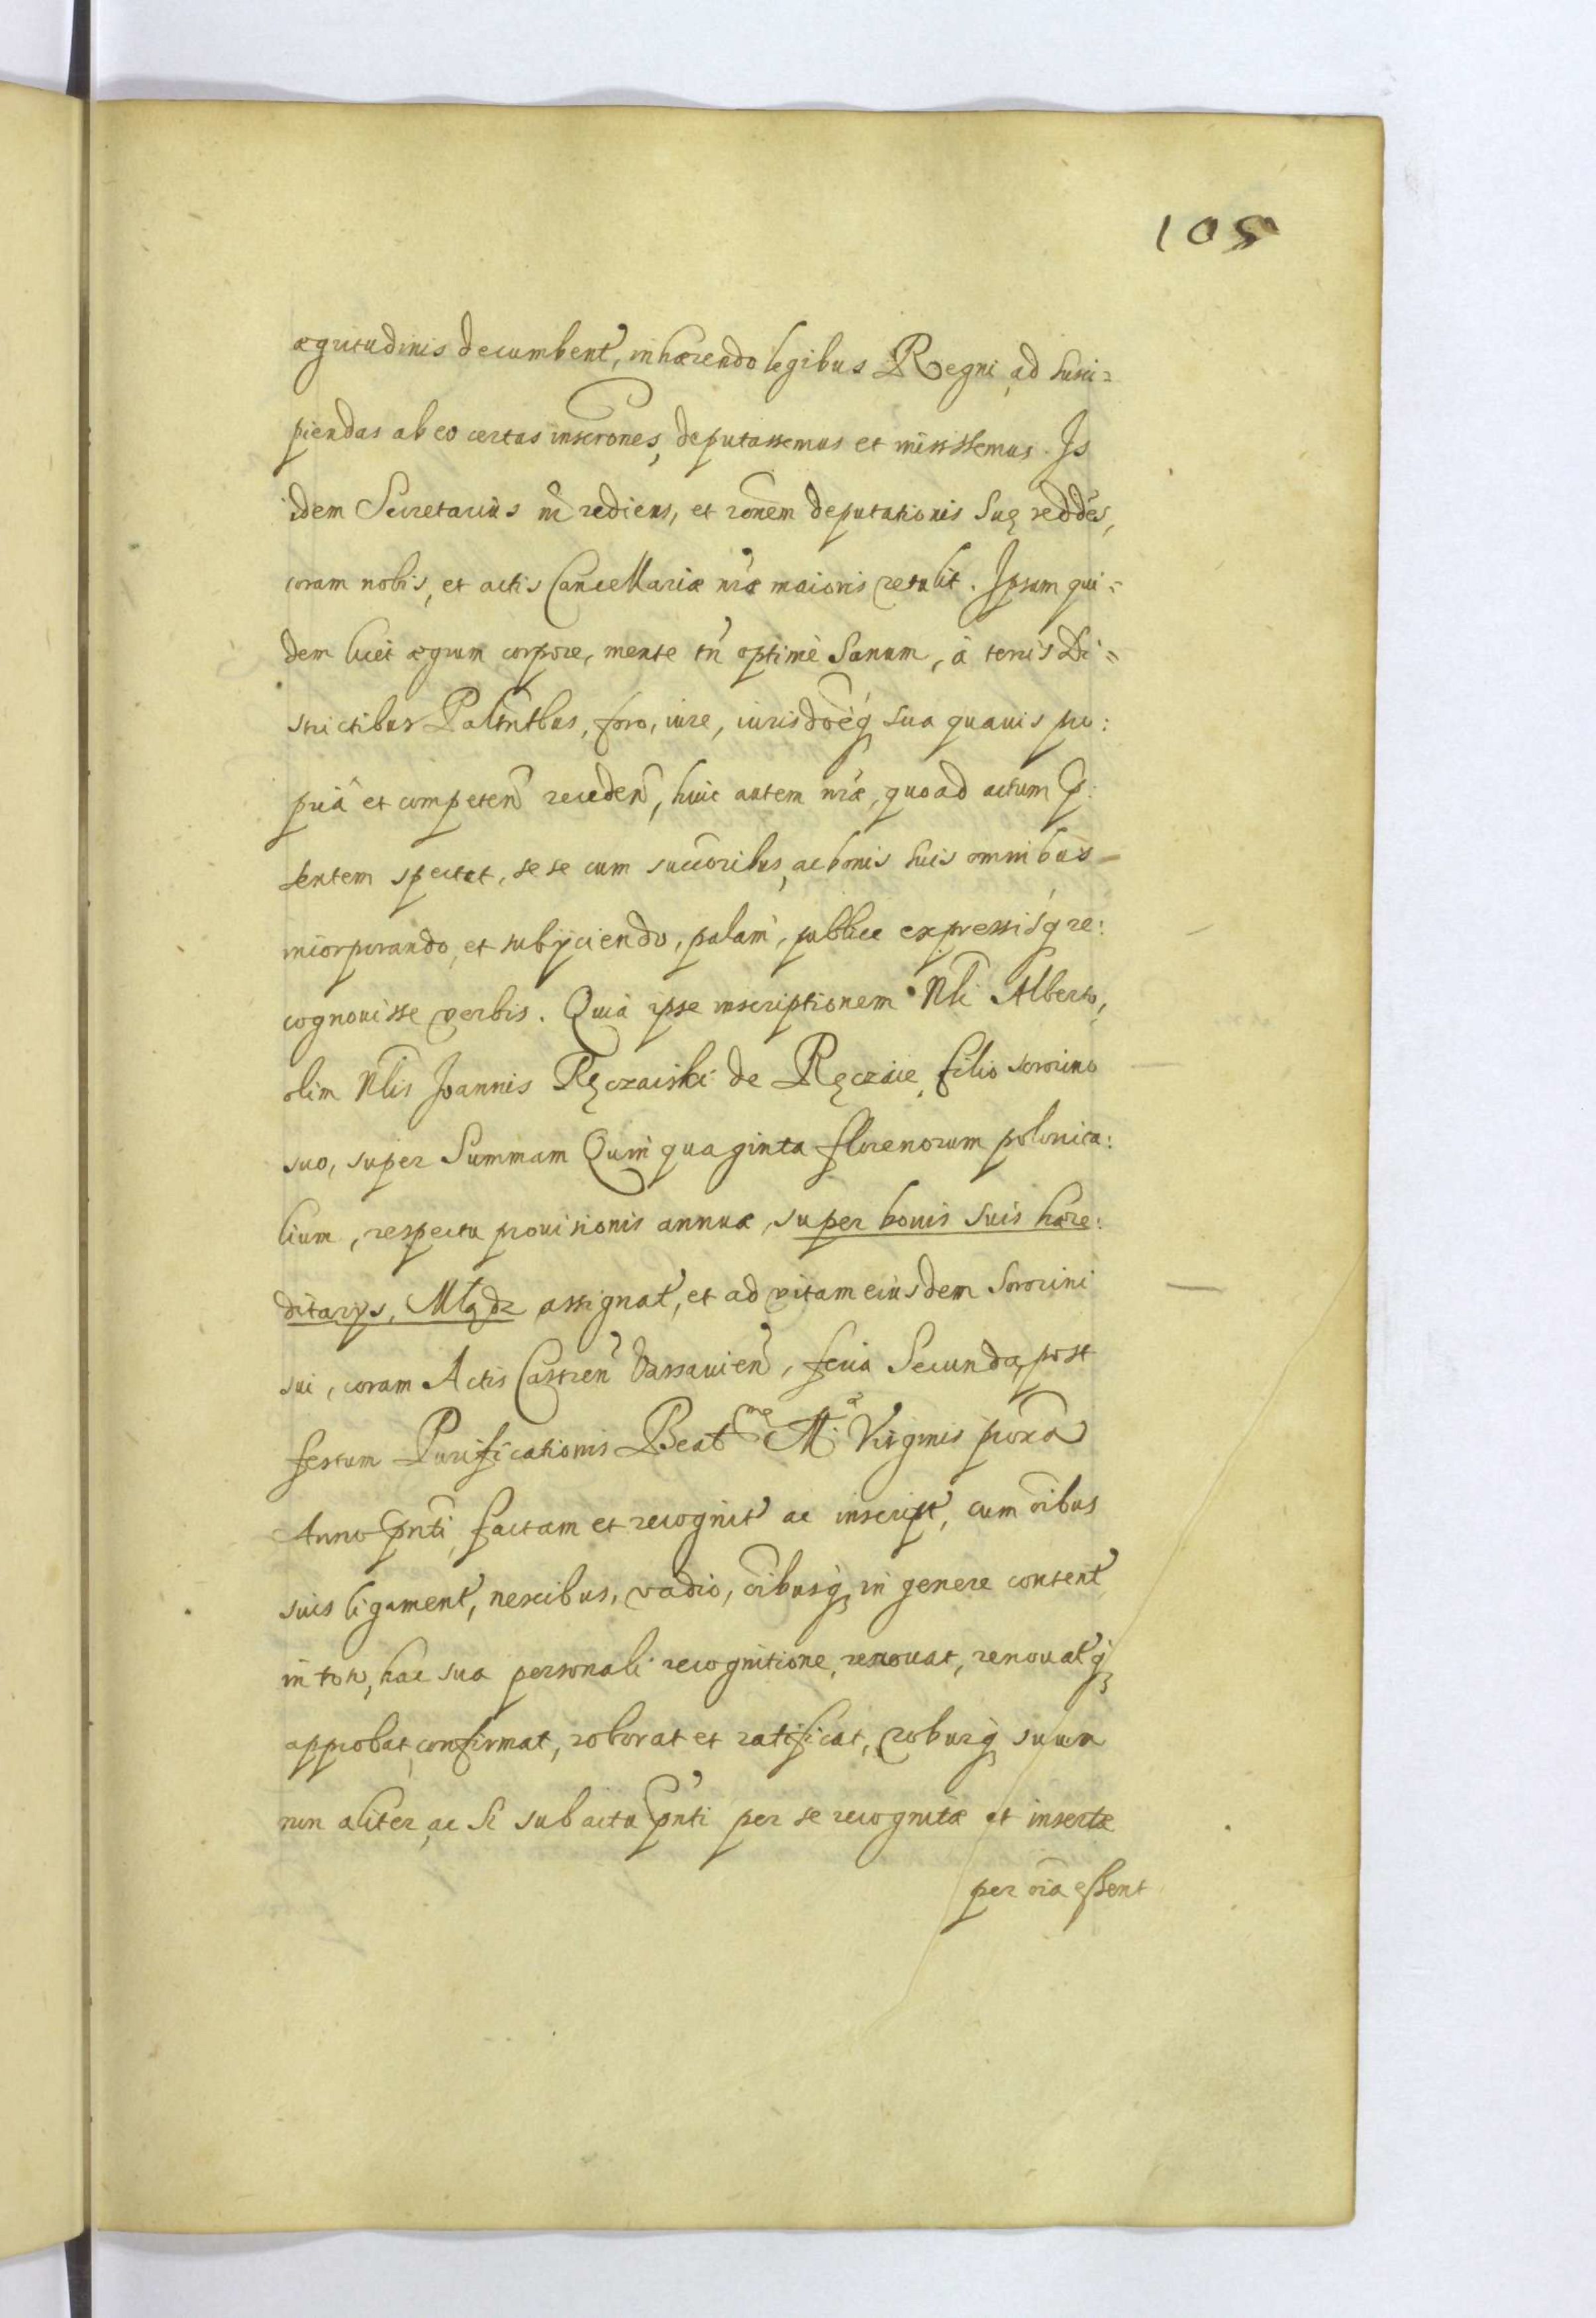 105
ægritudinis decumbent, inhærendo legibus Regni, ad susci=
piendas ab eo certas inscrones, deputassemus et misissemus. Is
idem Secretarius nr rediens, et ronem deputationis suę reddes,
coram nobis, et actis Cancellariæ nræ maioris retulit. Ipsum qui=
dem licet ægrum corpore, mente tn optimè sanum, à terris Di=
strictibus Palatntbus, foro, iure, iurisdoeq sua quauis pro:
priâ et competen receden, huic autem nræ, quoad actum p:
sentem spectat, se se cum succoribus, ac bonis suis omnibus
incorporando, et subijciendo, palam, publice expressisq re:
cognouisse verbis. Quia ipse inscriptionem Nli Alberto,
olim Nlis Joannis Ręczaiski de Ręczaie, filio sororino
suo, super Summam Quinquaginta florenorum polonica:
lium, respectu prouisionis annuæ, super bonis suis hære:
ditarys, Mlądz assignat, et ad vitam eiusdem Sororini
sui, coram Actis Castren Varssauien, feria Secunda, post
festum Purificationis Beatmæ M:æ Virginis proxa
Anno pnti, factam et recognit ac inscript, cum oibus
suis ligament, nexibus, vadio, oibusq in genere content
in toto, hac sua personali recognitione, renouat, renouatq
approbat, confirmat, roborat et ratificat, roburq suum
non aliter, ac si sub actu pnti per se recognitæ et insertæ
per oia essent